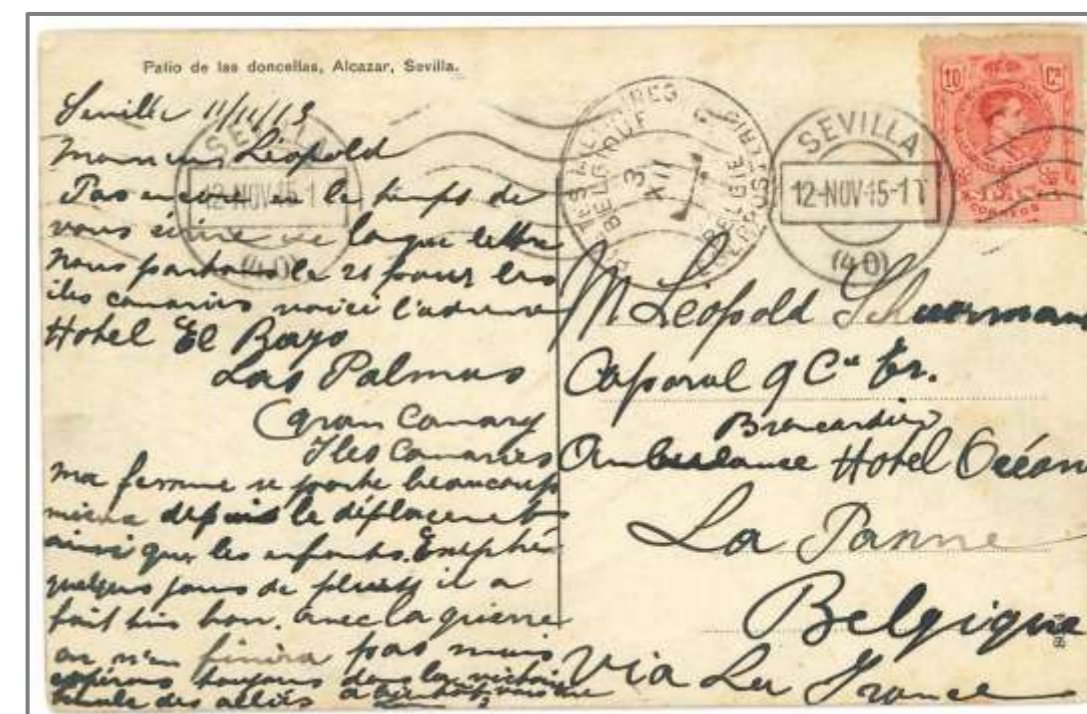 Patio de las doncellas, Alcazar, Sevilla.
Sevilla 11/11/15
Léopold
Pas encore eu le temps de
vous écrire une longue lettre
Nous partons le 21 pour les
iles canaries voici l'adresse
Hotel El Rayo
Las Palmas
Gran Canary
Iles Canaries
ma femme se porte beaucoup
mieux depuis le déplacement
ainsi que les enfants. Excepté
quelques jours de pluie il a
fait bon. avec la guerre
on n'en finira pas mais
espérons toujours dans la victoire
des alliés
SEVILLA
12-NOV-15-1T
(40)
BELGIQUE
3
XII
BELGIE
SEVILLA
12-NOV-15-1T
(40)
10 Cs
CORREOS
M Léopold
Caporal 9 Cie
Brancardier
Ambulance Hotel Océan
La Panne
Belgique
Via La France